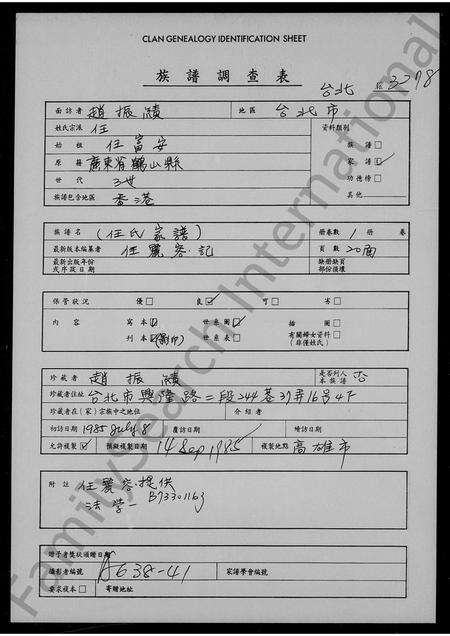 CLAN GENEALOGY IDENTIFICATION SHEET
族譜調查表
台北 3078
面訪者 趙振績 地區 台北市
姓氏宗派 任 資料類別
始祖 任富安 族譜 □
原籍 廣東省鶴山縣 家譜 ☑
世代 3世 功德榜 □
族譜包含地區 香港 其他
族譜名 (任氏家譜) 冊卷數 1 冊 卷
最新版本編纂者 任麗容.記 頁數 20面
最新出版年份或序跋日期 缺冊缺頁部份損壞
保管狀況 優 □ 良 ☑ 可 □ 劣 □
內容 寫本 ☑ 世系圖 ☑ 插圖 □
刊本 (影印) 世系表 □ 有關婦女資料(非僅姓氏) □
珍藏者 趙振績 是否列入本族譜 否
珍藏者住址 台北市興隆路二段244巷37弄16号4F
珍藏者在(家)宗族中之地位 介紹者
初訪日期 1985 July 8 覆訪日期 續訪日期
允許複製 ☑ 擬複製日期 14 Sep 1985 複製地點 高雄市
附註 任麗容.提供
法学一 B73301163
贈予者獎狀頒贈日期
攝影者編號 A638-41 家譜學會編號
要求複本 □ 寄贈地址
FamilySearch International